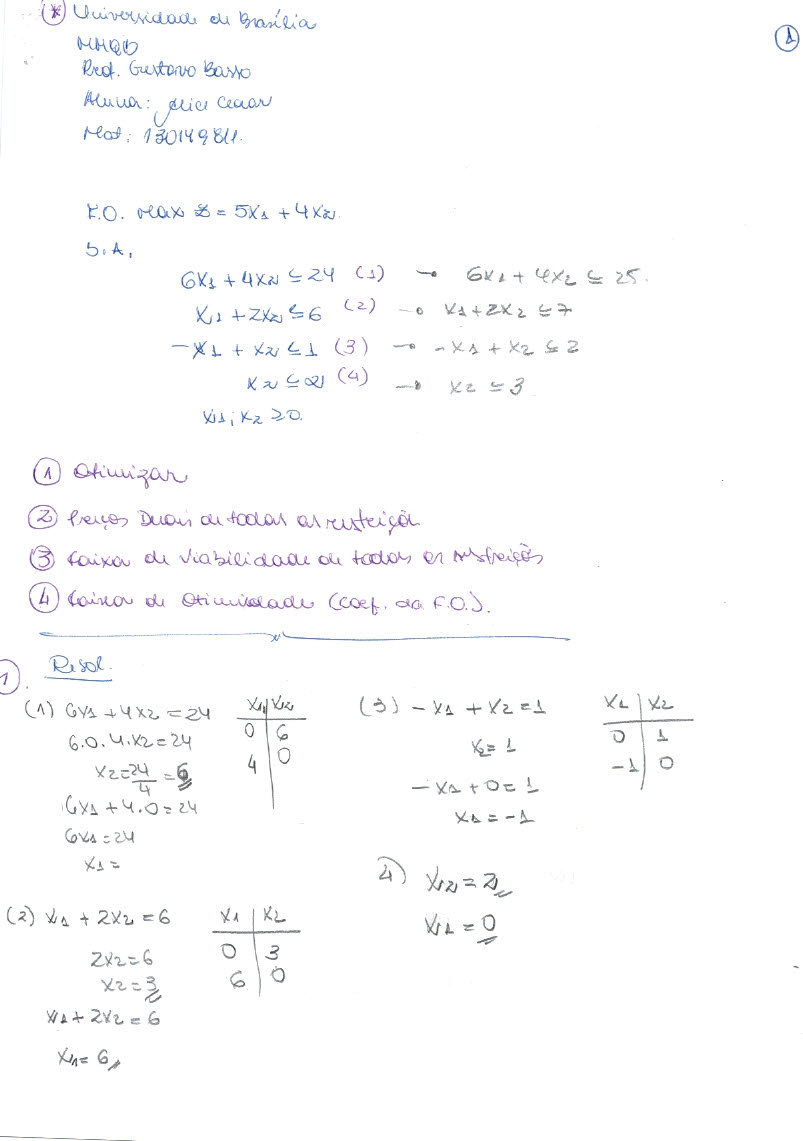 (*) Universidade de Brasília
1
MMQD
Prof. Gustavo Basso
Aluna:
Mat: 130149811.
F.O. Max Z = 5X1 + 4X2
S.A.
6X1 + 4X2 ≤ 24 (1) → 6X1 + 4X2 ≤ 25.
X1 + 2X2 ≤ 6 (2) → X1 + 2X2 ≤ 7
-X1 + X2 ≤ 1 (3) → -X1 + X2 ≤ 2
X2 ≤ 2 (4) → X2 ≤ 3
X1; X2 ≥ 0.
1 Otimizar
2 Preços Duais de todas as restrições
3 Faixa de Viabilidade de todas as restrições
4 Faixa de Otimalidade (coef. da F.O.).
1. Resol.
(1) 6X1 + 4X2 = 24
6.0.4.X2 = 24
X2 = 24/4 = 6
6X1 + 4.0 = 24
6X1 = 24
X1 =
X1 | X2
0 | 6
4 | 0
(3) -X1 + X2 = 1
X2 = 1
-X1 + 0 = 1
X1 = -1
X1 | X2
0 | 1
-1 | 0
(2) X1 + 2X2 = 6
2X2 = 6
X2 = 3
X1 + 2X2 = 6
X1 = 6
X1 | X2
0 | 3
6 | 0
4) X2 = 2
X1 = 0